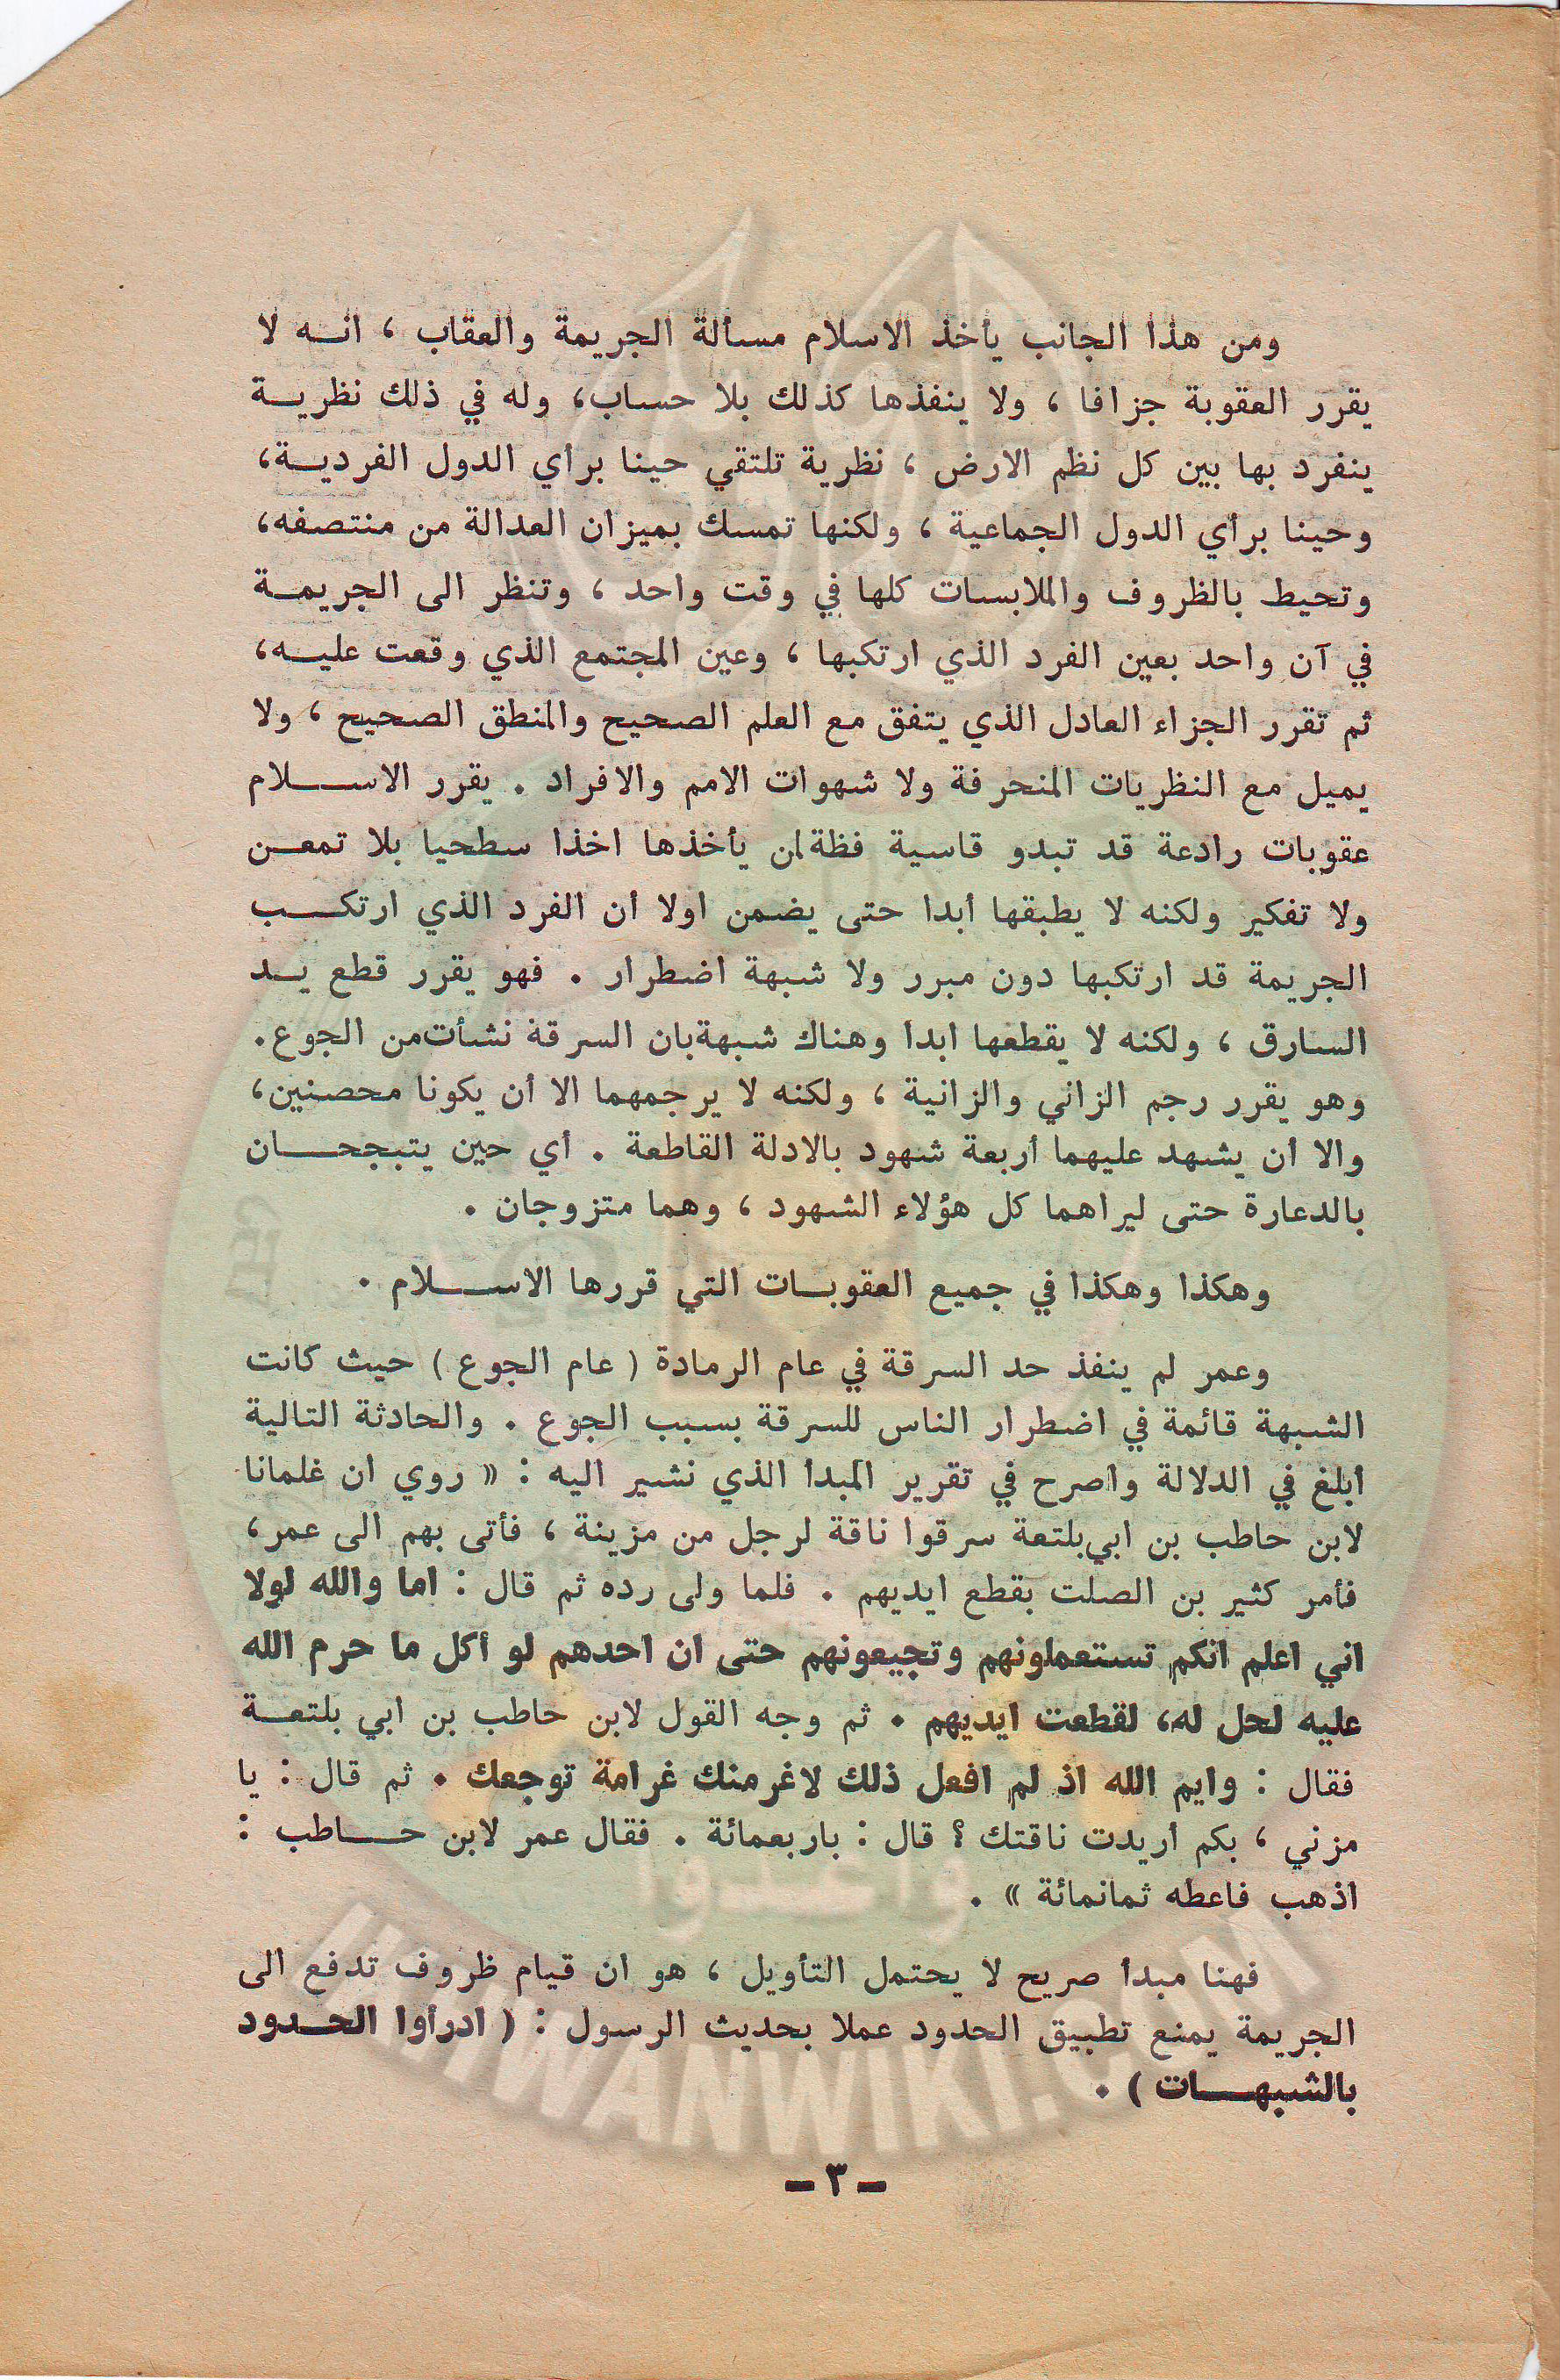 ومن هذا الجانب يأخذ الاسلام مسألة الجريمة والعقاب ، انه لا
يقرر العقوبة جزافا ، ولا ينفذها كذلك بلا حساب، وله في ذلك نظرية
ينفرد بها بين كل نظم الارض ، نظرية تلتقي حينا برأي الدول الفردية،
وحينا برأي الدول الجماعية ، ولكنها تمسك بميزان العدالة من منتصفه،
وتحيط بالظروف والملابسات كلها في وقت واحد ، وتنظر الى الجريمة
في آن واحد بعين الفرد الذي ارتكبها ، وعين المجتمع الذي وقعت عليه،
ثم تقرر الجزاء العادل الذي يتفق مع العلم الصحيح والمنطق الصحيح ، ولا
يميل مع النظريات المنحرفة ولا شهوات الامم والافراد . يقرر الاسلام
عقوبات رادعة قد تبدو قاسية فظة لمن يأخذها اخذا سطحيا بلا تمعن
ولا تفكير ولكنه لا يطبقها أبدا حتى يضمن اولا أن الفرد الذي ارتكب
الجريمة قد ارتكبها دون مبرر ولا شبهة اضطرار . فهو يقرر قطع يد
السارق ، ولكنه لا يقطعها ابدا وهناك شبهة بان السرقة نشأت من الجوع.
وهو يقرر رجم الزاني والزانية ، ولكنه لا يرجمهما الا أن يكونا محصنين،
والا أن يشهد عليهما أربعة شهود بالادلة القاطعة . أي حين يتبجحان
بالدعارة حتى ليراهما كل هؤلاء الشهود ، وهما متزوجان .
وهكذا وهكذا في جميع العقوبات التي قررها الاسلام .
وعمر لم ينفذ حد السرقة في عام الرمادة ( عام الجوع ) حيث كانت
الشبهة قائمة في اضطرار الناس للسرقة بسبب الجوع . والحادثة التالية
أبلغ في الدلالة واصرح في تقرير المبدأ الذي نشير اليه : « روي ان غلمانا
لابن حاطب بن ابي بلتعة سرقوا ناقة لرجل من مزينة ، فأتى بهم الى عمر،
فأمر كثير بن الصلت بقطع ايديهم . فلما ولى رده ثم قال : اما والله لولا
اني اعلم انكم تستعملونهم وتجيعونهم حتى ان احدهم لو أكل ما حرم الله
عليه لحل له، لقطعت ايديهم . ثم وجه القول لابن حاطب بن ابي بلتعة
فقال : وايم الله اذ لم افعل ذلك لاغرمنك غرامة توجعك . ثم قال : يا
مزني ، بكم أريدت ناقتك ؟ قال : باربعمائة . فقال عمر لابن حاطب :
اذهب فاعطه ثمانمائة » .
فهنا مبدأ صريح لا يحتمل التأويل ، هو ان قيام ظروف تدفع الى
الجريمة يمنع تطبيق الحدود عملا بحديث الرسول : ( ادرأوا الحدود
بالشبهات ) .
- ٣ -